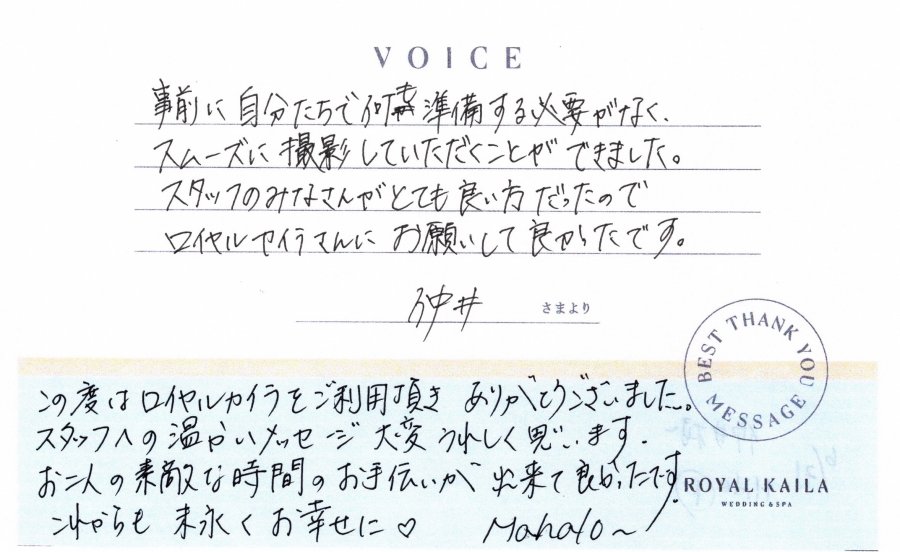 VOICE
事前に自分たちで何も準備する必要がなく、
スムーズに撮影していただくことができました。
スタッフのみなさんがとても良い方だったので
ロイヤルカイラさんにお願いして良かったです。
仲井 さまより
BEST THANK YOU MESSAGE
この度はロイヤルカイラをご利用頂き ありがとうございました。
スタッフへの温かいメッセージ 大変うれしく思います.
お二人の素敵な時間のお手伝いが 出来て良かったです
これからも 末永くお幸せに♡ Mahalo~
ROYAL KAILA
WEDDING & SPA